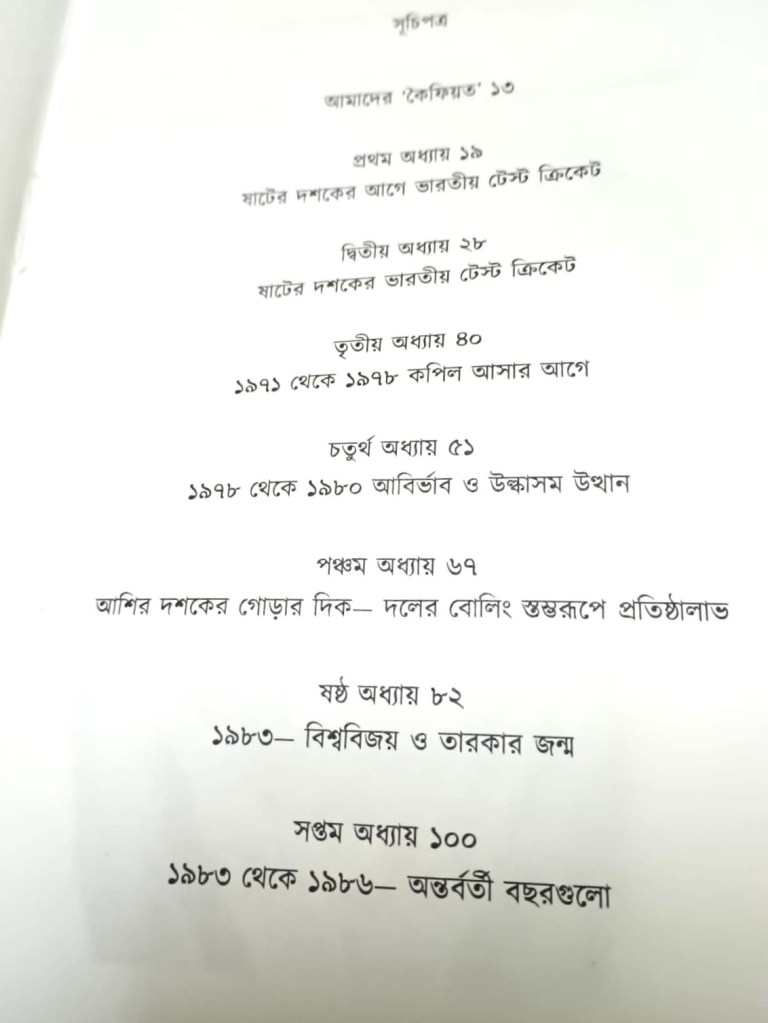 সূচিপত্র
আমাদের ‘কৈফিয়ত’ ১৩
প্রথম অধ্যায় ১৯
ষাটের দশকের আগে ভারতীয় টেস্ট ক্রিকেট
দ্বিতীয় অধ্যায় ২৮
ষাটের দশকের ভারতীয় টেস্ট ক্রিকেট
তৃতীয় অধ্যায় ৪০
১৯৭১ থেকে ১৯৭৮ কপিল আসার আগে
চতুর্থ অধ্যায় ৫১
১৯৭৮ থেকে ১৯৮০ আবির্ভাব ও উল্কাসম উত্থান
পঞ্চম অধ্যায় ৬৭
আশির দশকের গোড়ার দিক— দলের বোলিং স্তম্ভরূপে প্রতিষ্ঠালাভ
ষষ্ঠ অধ্যায় ৮২
১৯৮৩— বিশ্ববিজয় ও তারকার জন্ম
সপ্তম অধ্যায় ১০০
১৯৮৩ থেকে ১৯৮৬— অন্তর্বর্তী বছরগুলো